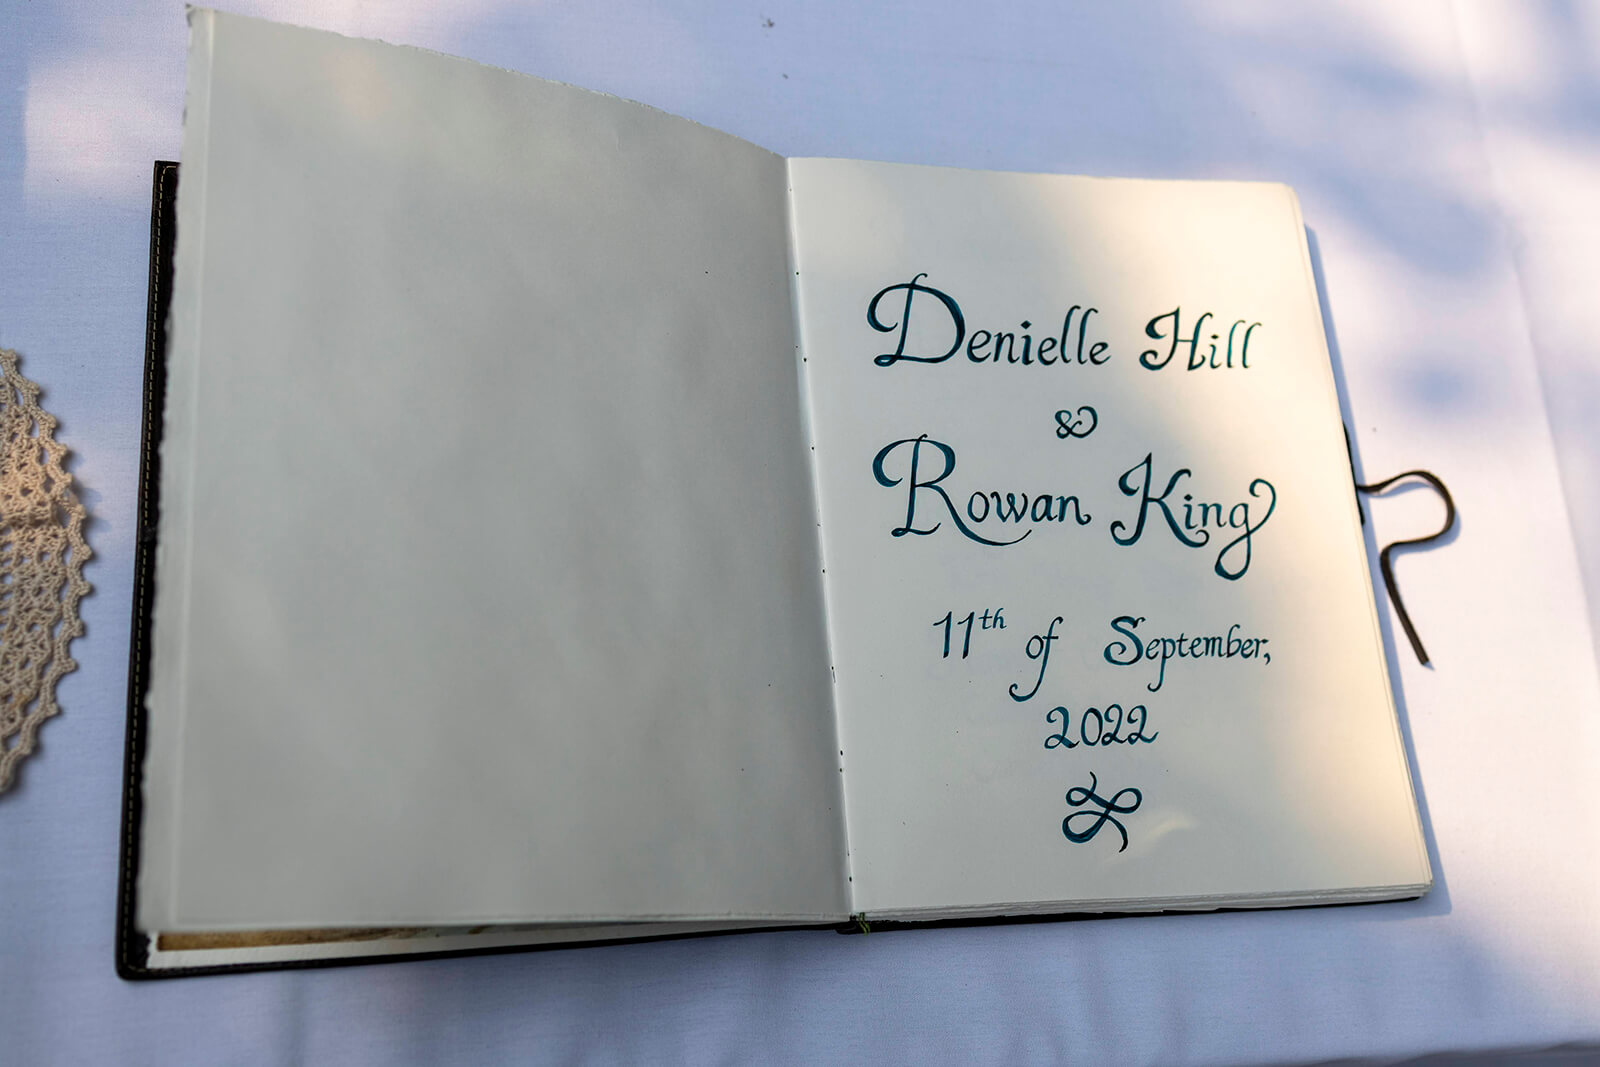 Denielle Hill
&
Rowan King
11th of September,
2022